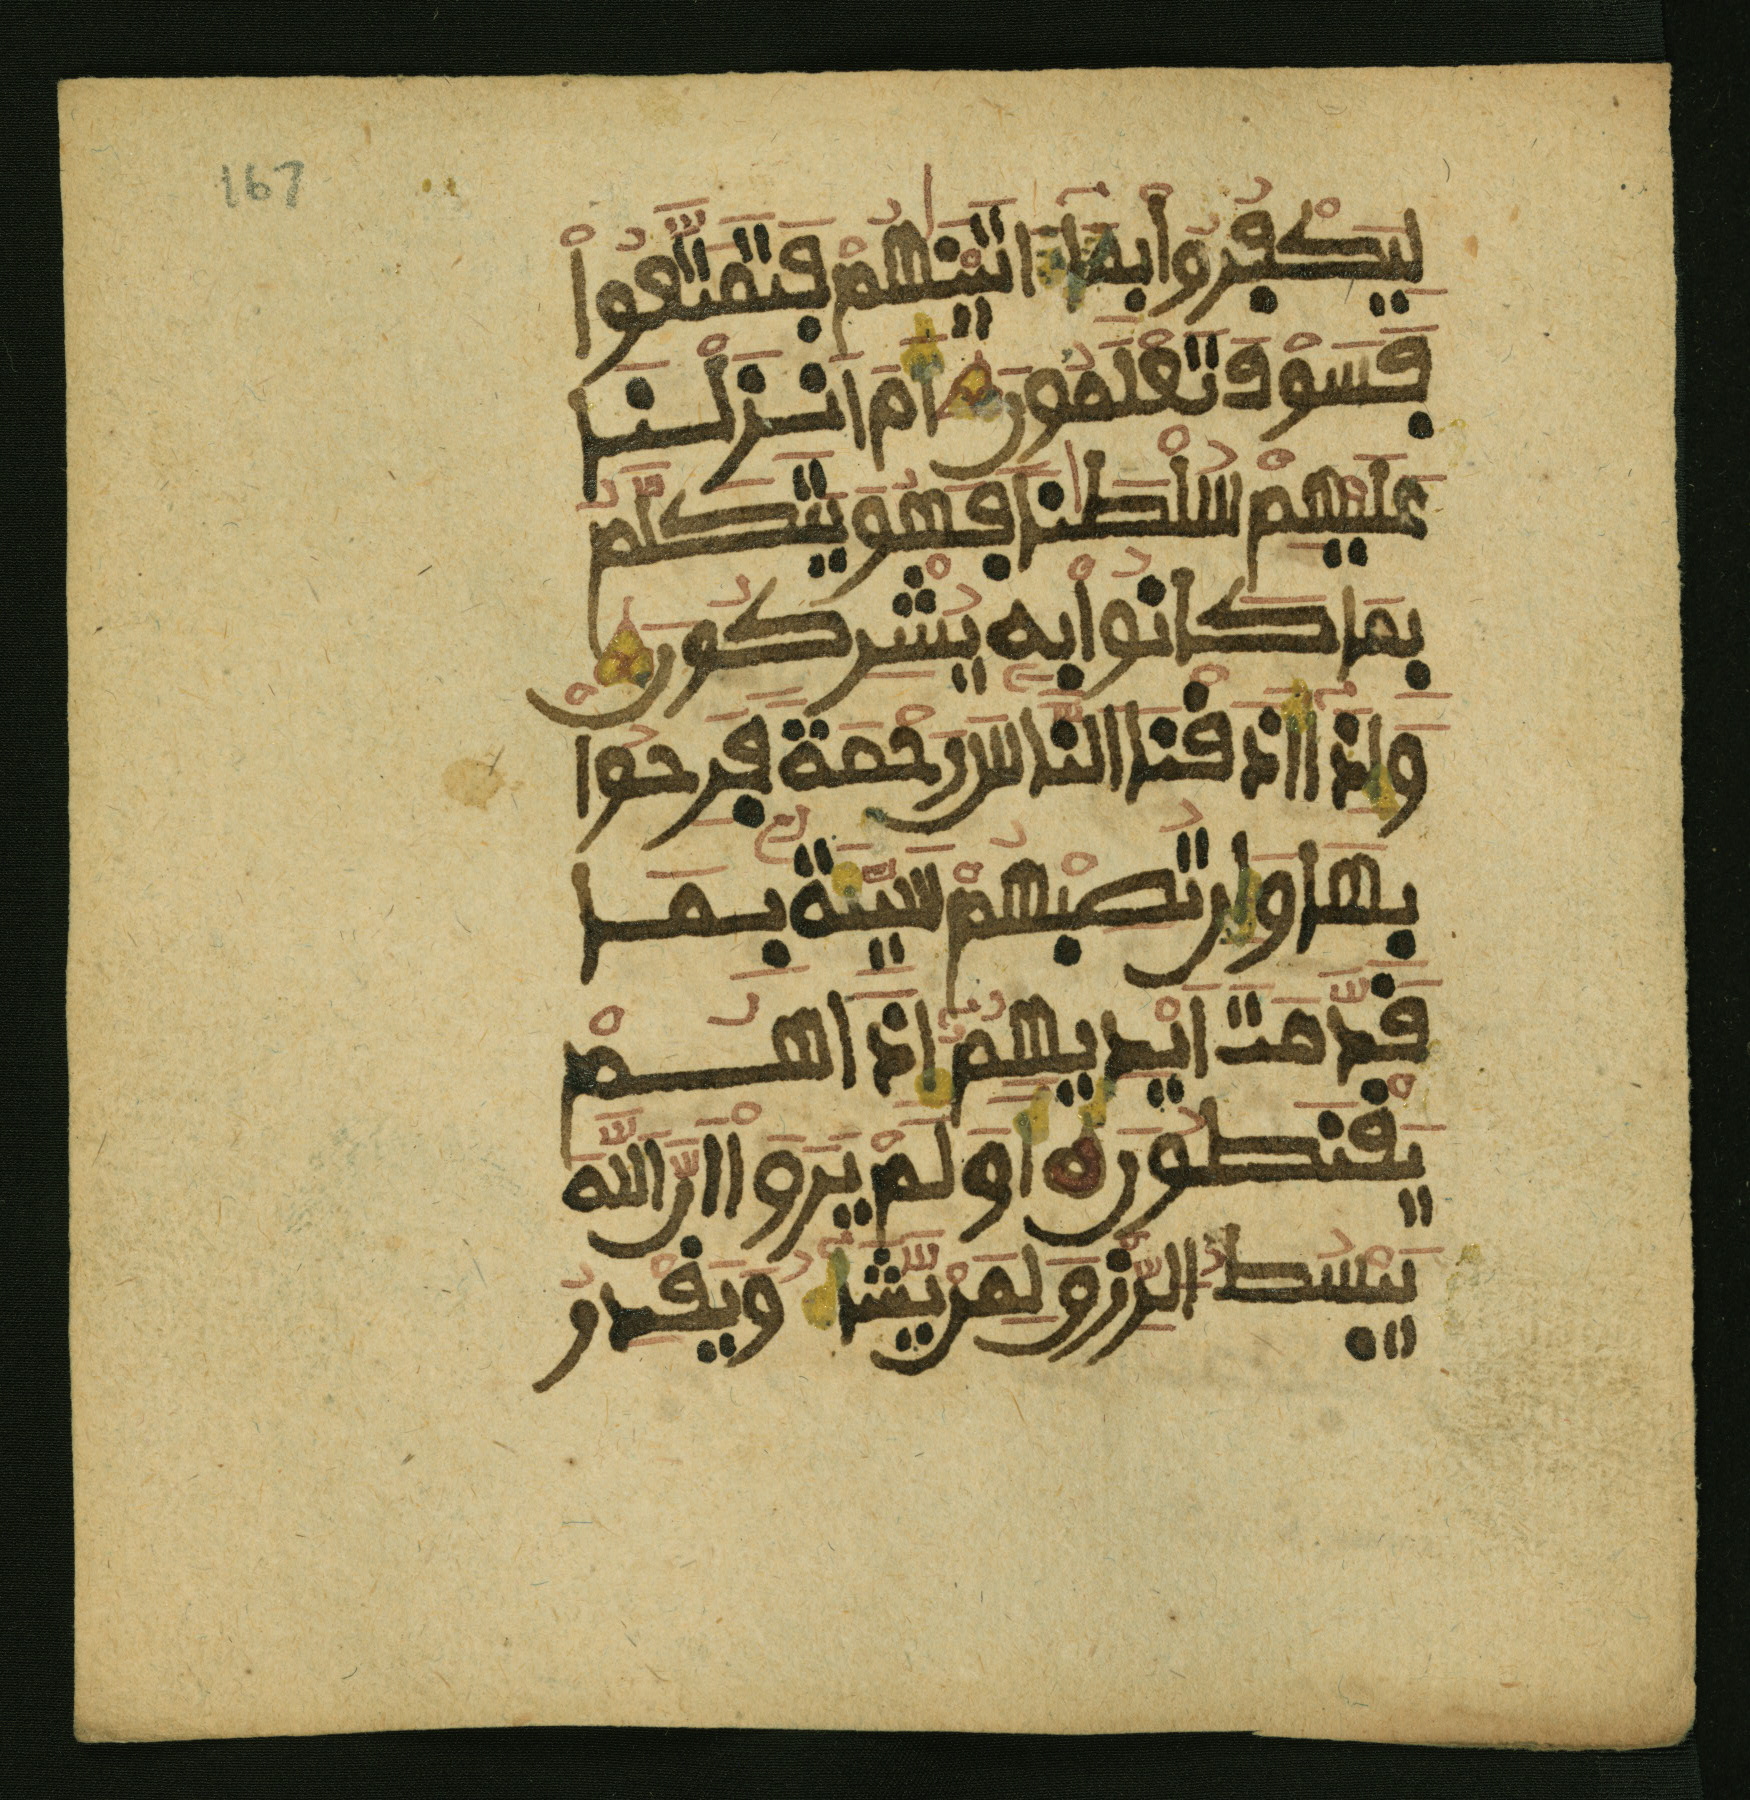 167
لِيَكْفُرُواْ بِمَا ءَاتَيْنَٰهُمْ فَتَمَتَّعُواْ
فَسَوْفَ تَعْلَمُونَ أَمَ اَنزَلْنَا
عَلَيْهِمْ سُلْطَٰنا فَهُوَ يَتَكَلَّمُ
بِمَا كَانُواْ بِهِ يُشْرِكُونَ
وَإِذَا أَذَقْنَا النَّاسَ رَحْمَةً فَرِحُواْ
بِهَا وَإِن تُصِبْهُمْ سَيِّئَةٌ بِمَا
قَدَّمَتَ اَيْدِيهِمُ إِذَا هُمْ
يَقْنَطُونَ أَوَلَمْ يَرَوْاْ أَنَّ اللَّهَ
يَبْسُطُ الرِّزْقَ لِمَنْ يَّشَاءُ وَيَقْدِرُ